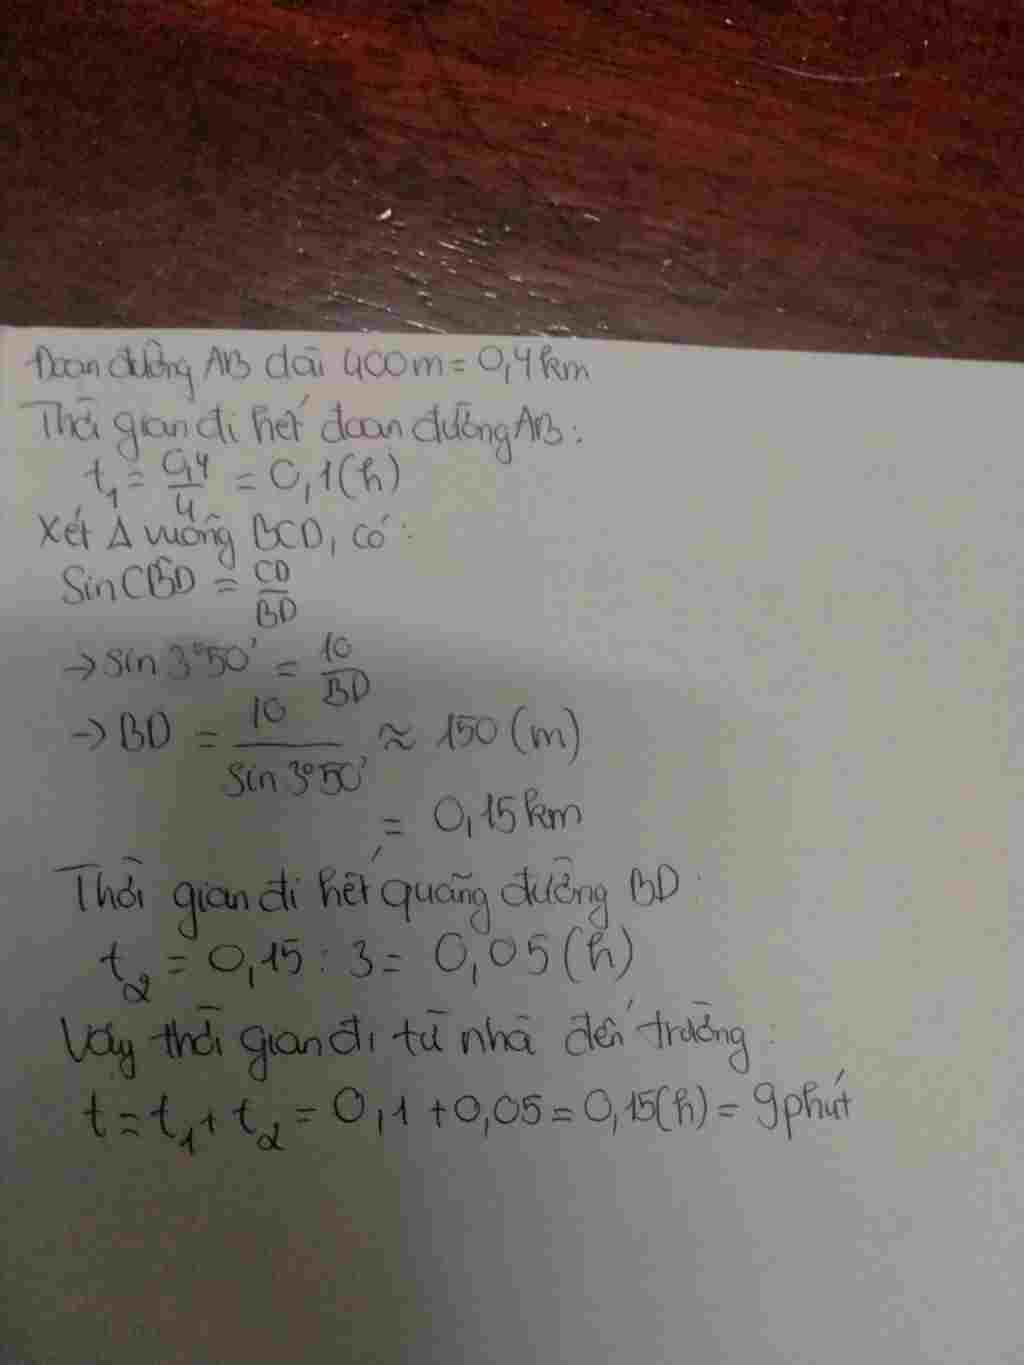 Đoạn đường AB dài 400m = 0,4km
Thời gian đi hết đoạn đường AB:
t₁ = 0,4/4 = 0,1(h)
Xét Δ vuông BCD, có:
Sin CBD = CD/BD
→ sin 3°50' = 10/BD
→ BD = 10/sin 3°50' ≈ 150 (m)
= 0,15km
Thời gian đi hết quãng đường BD:
t₂ = 0,15 : 3 = 0,05 (h)
Vậy thời gian đi từ nhà đến trường:
t = t₁ + t₂ = 0,1 + 0,05 = 0,15(h) = 9 phút